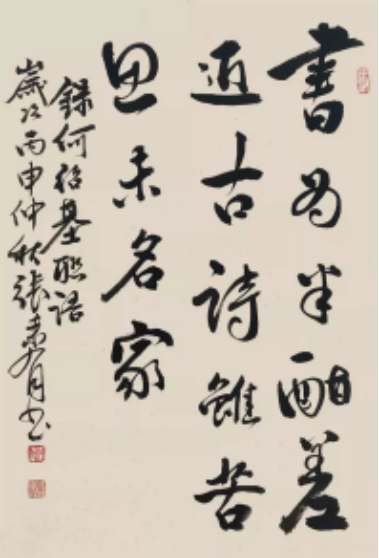 書為半酣差
近古詩雖苦
思未名家
錄何紹基聯語
歲次丙申仲秋張書